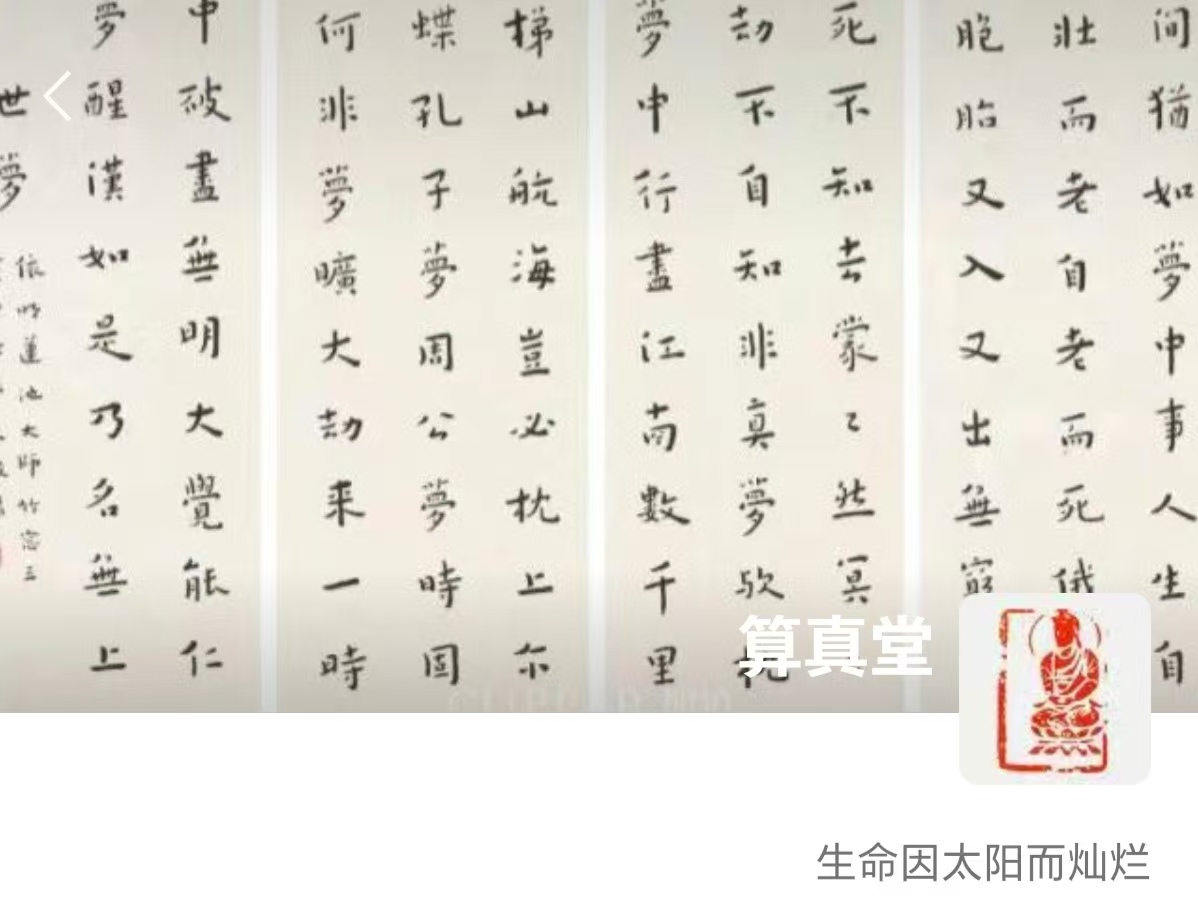 间猶如夢中事人生自
壯而老自老而死俄
胞胎又入又出無窮
死不知去蒙〻然冥
劫不自知非真夢欤
夢中行盡江南數千里
梯山航海豈必枕上尔
蝶孔子夢周公夢時固
何非夢曠大劫来一時
中破盡無明大覺能仁
夢醒漢如是乃名無上
世夢
依明蓮池大師竹窓三
算真堂
生命因太阳而灿烂